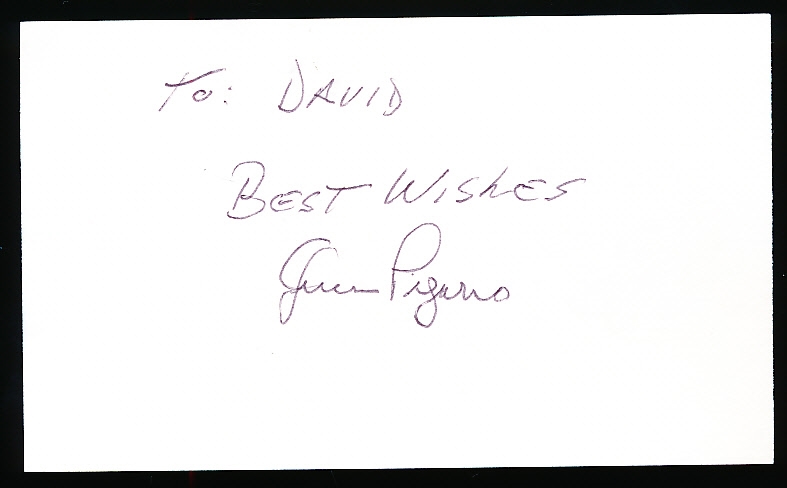 To: DAVID
BEST WISHES
Juan Pizarro